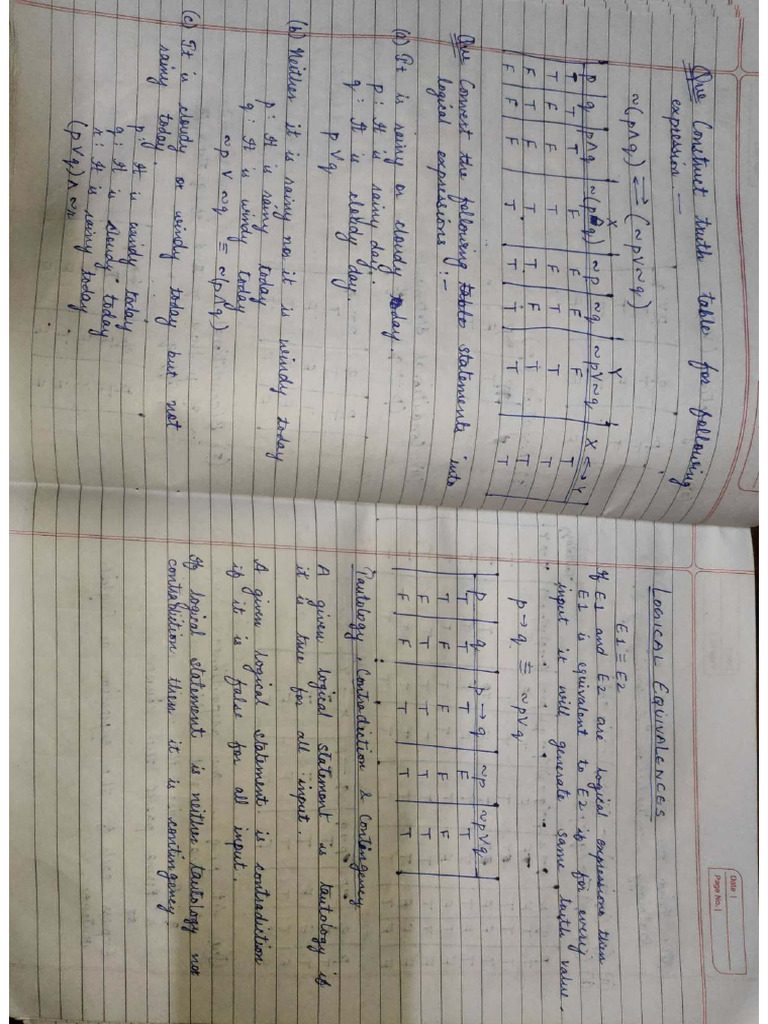 Que Construct truth table for following
expression :-
~(p∧q) ⇌ (~p∨~q)
X Y
p q p∧q ~(p∧q) ~p ~q ~p∨~q X↔Y
T T T F F F F T
T F F T F T T T
F T F T T F T T
F F F T T T T T
Que Convert the following statements into
logical expressions :-
(a) It is rainy or cloudy today.
p : It is rainy day.
q : It is cloudy day.
p∨q
(b) Neither it is rainy nor it is windy today
p : It is rainy today
q : It is windy today
~p ∨ ~q ≡ ~(p∧q).
(c) It is cloudy or windy today but not
rainy today.
p : It is windy today
q : It is cloudy today
r : It is rainy today.
(p∨q)∧~r
Date |
Page No. |
LOGICAL EQUIVALENCES
E1 ≡ E2
If E1 and E2 are logical expressions then
E1 is equivalent to E2 if for every
input it will generate same truth value.
p→q ≡ ~p∨q
p q p→q ~p ~p∨q
T T T F T
T F F F F
F T T T T
F F T T T
Tautology, Contradiction & Contingency
A given logical statement is tautology if
it is true for all input.
A given logical statement is contradiction
if it is false for all input.
If logical statement is neither tautology not
contradiction then it is contingency.